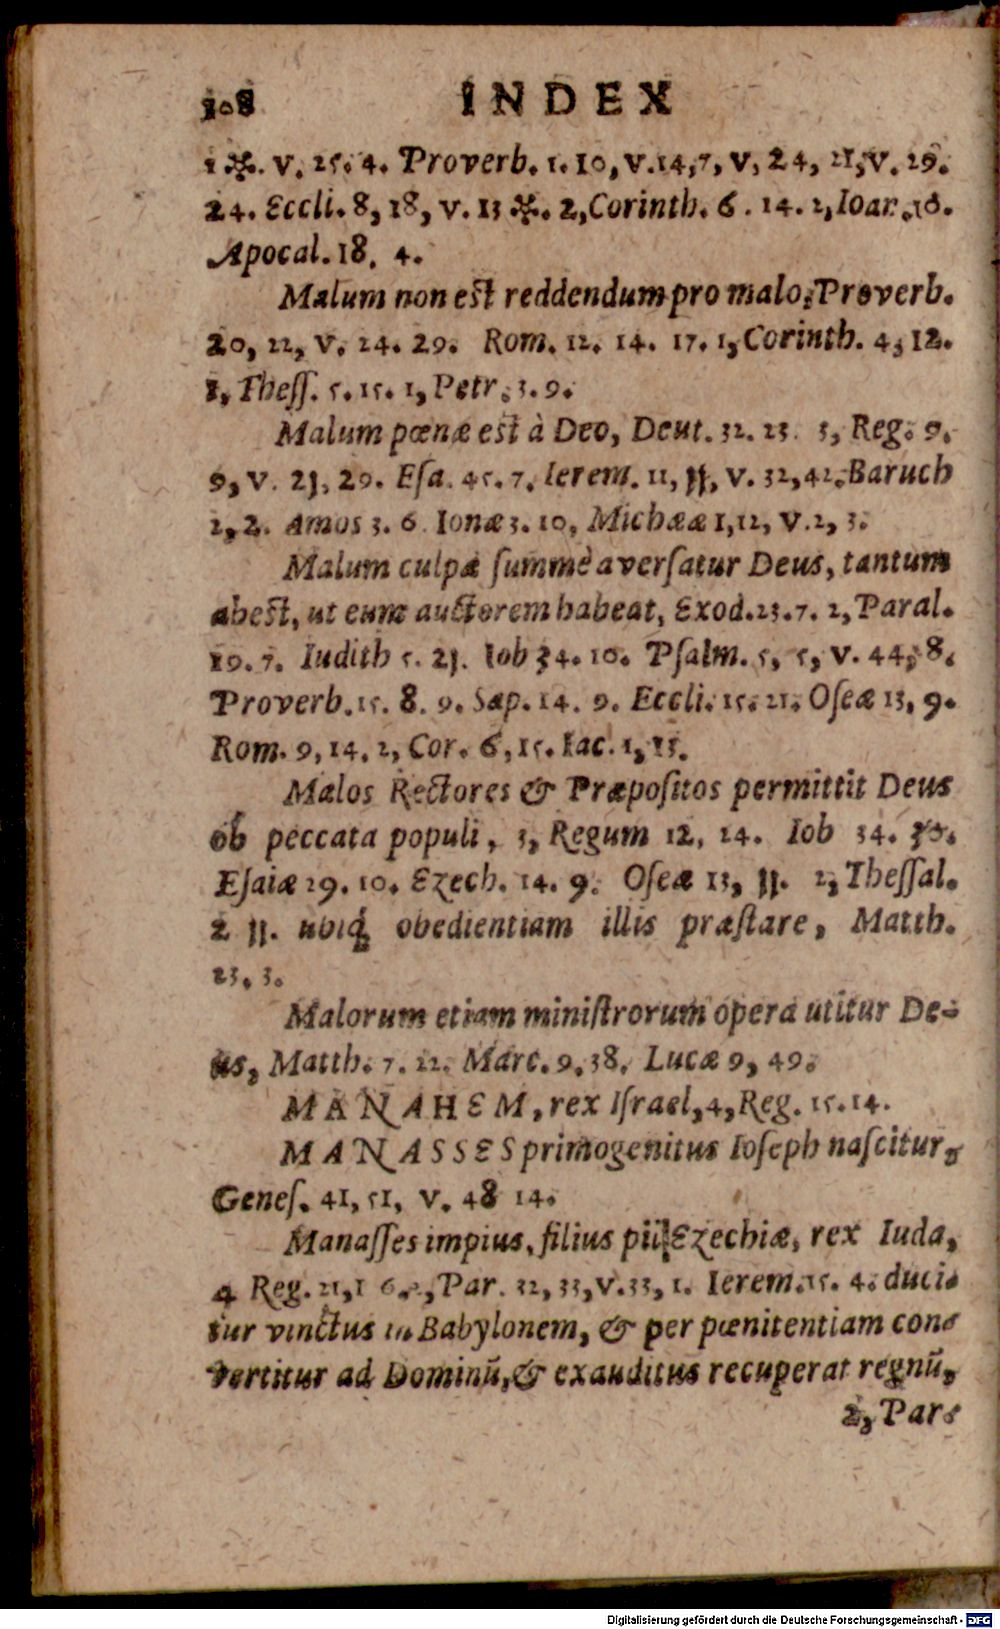 108 INDEX
1 ✠. v. 25. 4. Proverb. 1. 10, v. 14, 7, v, 24, 21, v. 29.
24. Eccli. 8, 18, v. 13 ✠. 2, Corinth. 6. 14. 2, Ioan. 10.
Apocal. 18, 4.
Malum non est reddendum pro malo, Proverb.
20, 22, v. 24. 29. Rom. 12. 14. 17. 1, Corinth. 4, 12.
1, Theſſ. 5. 15. 1, Petr. 3. 9.
Malum pœnæ est à Deo, Deut. 32. 23. 3, Reg. 9.
9, v. 21, 29. Eſa. 45. 7. Ierem. 11, 11, v. 32, 42. Baruch
2, 2. Amos 3. 6 Ionæ 3. 10, Michææ 1, 12, v. 2, 3.
Malum culpæ ſummè averſatur Deus, tantum
abest, ut eum auctorem habeat, Exod. 23. 7. 2, Paral.
19. 7. Iudith 5. 21. Iob 34. 10. Pſalm. 5, 5, v. 44, 8.
Proverb. 15. 8. 9. Sap. 14. 9. Eccli. 15. 21. Oſeæ 13, 9.
Rom. 9, 14. 2, Cor. 6, 15. Iac. 1, 13.
Malos Rectores & Præpoſitos permittit Deus
ob peccata populi, 3, Regum 12, 14. Iob 34. 30.
Eſaiæ 29. 10. Ezech. 14. 9. Oſeæ 13, 11. 2, Theſſal.
2 11. ubiq́; obedientiam illis præſtare, Matth.
23. 3.
Malorum etiam miniſtrorum opera utitur De-
us, Matth. 7. 22. Marc. 9. 38. Lucæ 9, 49.
MANAHEM, rex Iſrael, 4, Reg. 15. 14.
MANASSES primogenitus Ioſeph naſcitur,
Geneſ. 41, 51, v. 48 14.
Manaſſes impius, filius pii Ezechiæ, rex Iuda,
4 Reg. 21, 1 6. 2, Par. 32, 33, v. 33, 1. Ierem. 15. 4. duci-
tur vinctus in Babylonem, & per pœnitentiam con-
vertitur ad Dominū, & exauditus recuperat regnū,
2, Par-
Digitalisierung gefördert durch die Deutsche Forschungsgemeinschaft - DFG